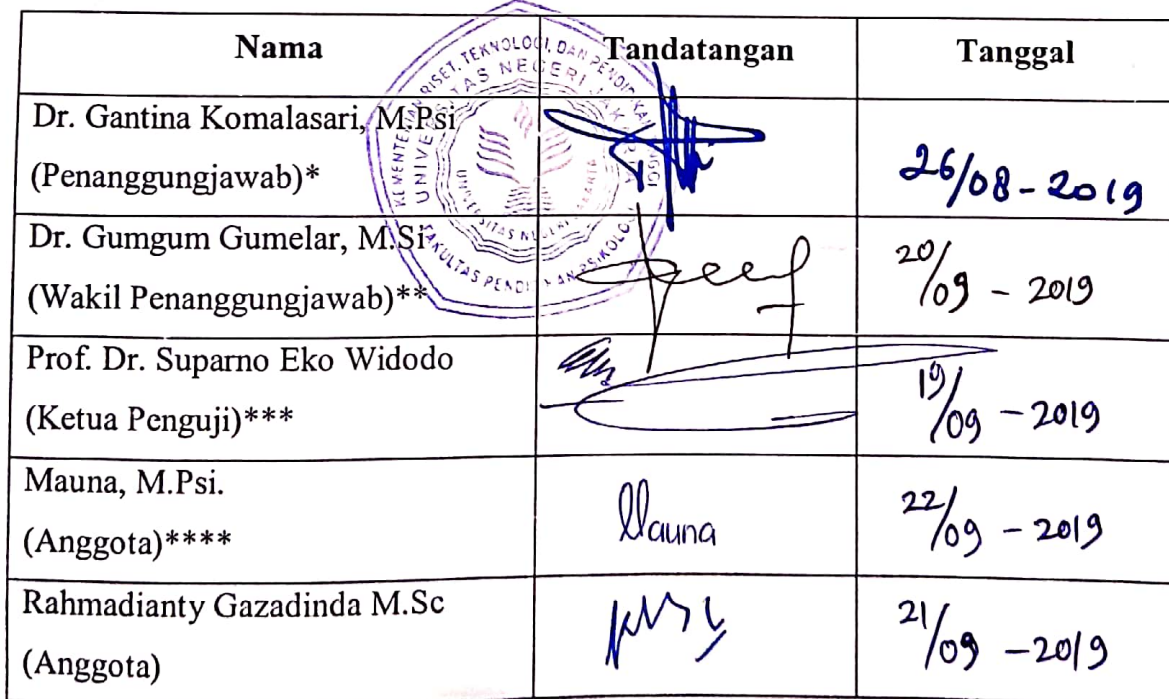 Nama Tandatangan Tanggal
Dr. Gantina Komalasari, M.Psi
(Penanggungjawab)* 26/08-2019
Dr. Gumgum Gumelar, M.Si
(Wakil Penanggungjawab)** 20/09 - 2019
Prof. Dr. Suparno Eko Widodo
(Ketua Penguji)*** 19/09 - 2019
Mauna, M.Psi.
(Anggota)**** Mauna 22/09 - 2019
Rahmadianty Gazadinda M.Sc
(Anggota) 21/09 - 2019
UNIVERSITAS NEGERI JAKARTA